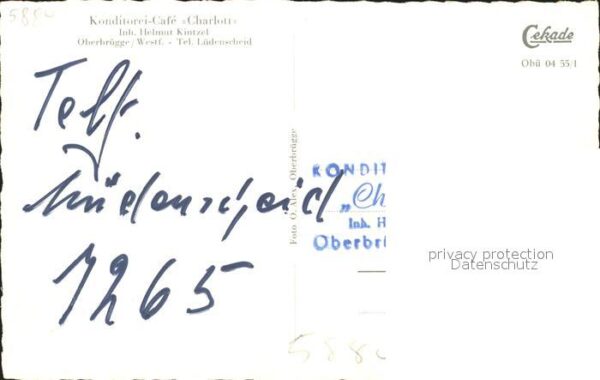 588
Konditorei-Café »Charlott«
Inh. Helmut Kintzel
Oberbrügge/Westf. - Tel. Lüdenscheid
Cekade
Obü 04 55/1
Telf.
Lüdenscheid
7265
Foto O. Alex, Oberbrügge
KONDIT
„Ch
Inh. H
Oberbrü
privacy protection
Datenschutz
588